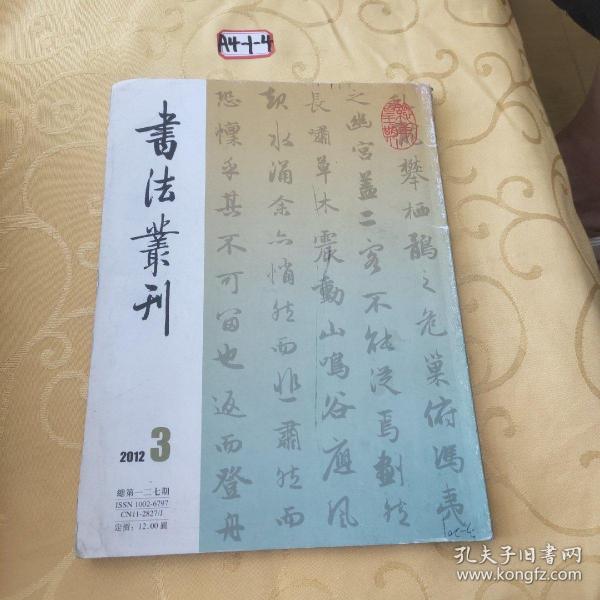 A4-1-4
書法叢刊
2012 3
總第一二七期
ISSN 1002-6797
CN11-2827/J
定價：12.00圓
攀栖鶻之危巢俯馮夷
之幽宮蓋二客不能從焉劃然
長嘯草木震動山鳴谷應風
起水涌余亦悄然而悲肅然而
恐懍乎其不可留也返而登舟
孔夫子旧書网
www.kongfz.com